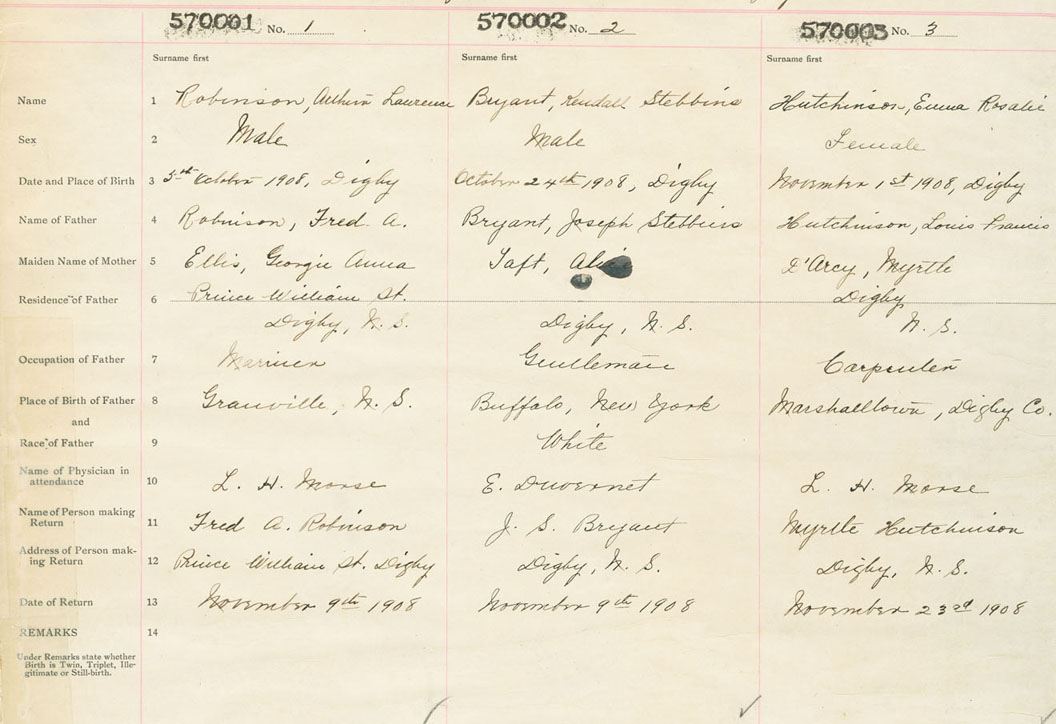 570001 No. 1 570002 No. 2 570003 No. 3
Surname first Surname first Surname first
Name 1 Robinson, Arthur Lawrence Bryant, Kendall Stebbins Hutchinson, Emma Rosalie
Sex 2 Male Male Female
Date and Place of Birth 3 5th October 1908, Digby October 24th 1908, Digby November 1st 1908, Digby
Name of Father 4 Robinson, Fred A. Bryant, Joseph Stebbins Hutchinson, Louis Francis
Maiden Name of Mother 5 Ellis, Georgie Anna Taft, Alice D'Arcy, Myrtle
Residence of Father 6 Prince William St. Digby
Digby, N. S. Digby, N. S. N. S.
Occupation of Father 7 Mariner Gentleman Carpenter
Place of Birth of Father 8 Granville, N. S. Buffalo, New York Marshalltown, Digby Co.
and
Race of Father 9 White
Name of Physician in
attendance 10 L. H. Morse E. Duvernet L. H. Morse
Name of Person making
Return 11 Fred A. Robinson J. S. Bryant Myrtle Hutchinson
Address of Person mak-
ing Return 12 Prince William St. Digby Digby, N. S. Digby, N. S.
Date of Return 13 November 9th 1908 November 9th 1908 November 23rd 1908
REMARKS 14
Under Remarks state whether
Birth is Twin, Triplet, Ille-
gitimate or Still-birth.